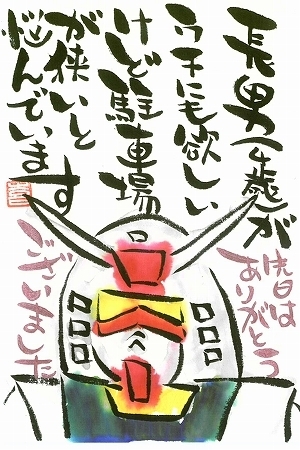 長男(4歳)が
ウチにも欲しい
けど駐車場
が狭いと
悩んでいます
先日は
ありがとう
ございました